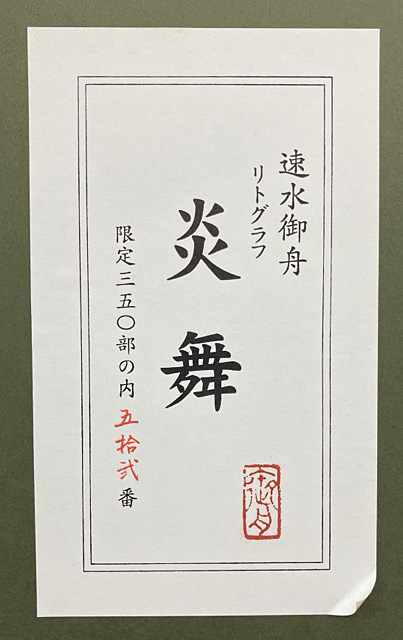 速水御舟
リトグラフ
炎舞
限定三五〇部の内五拾弐番